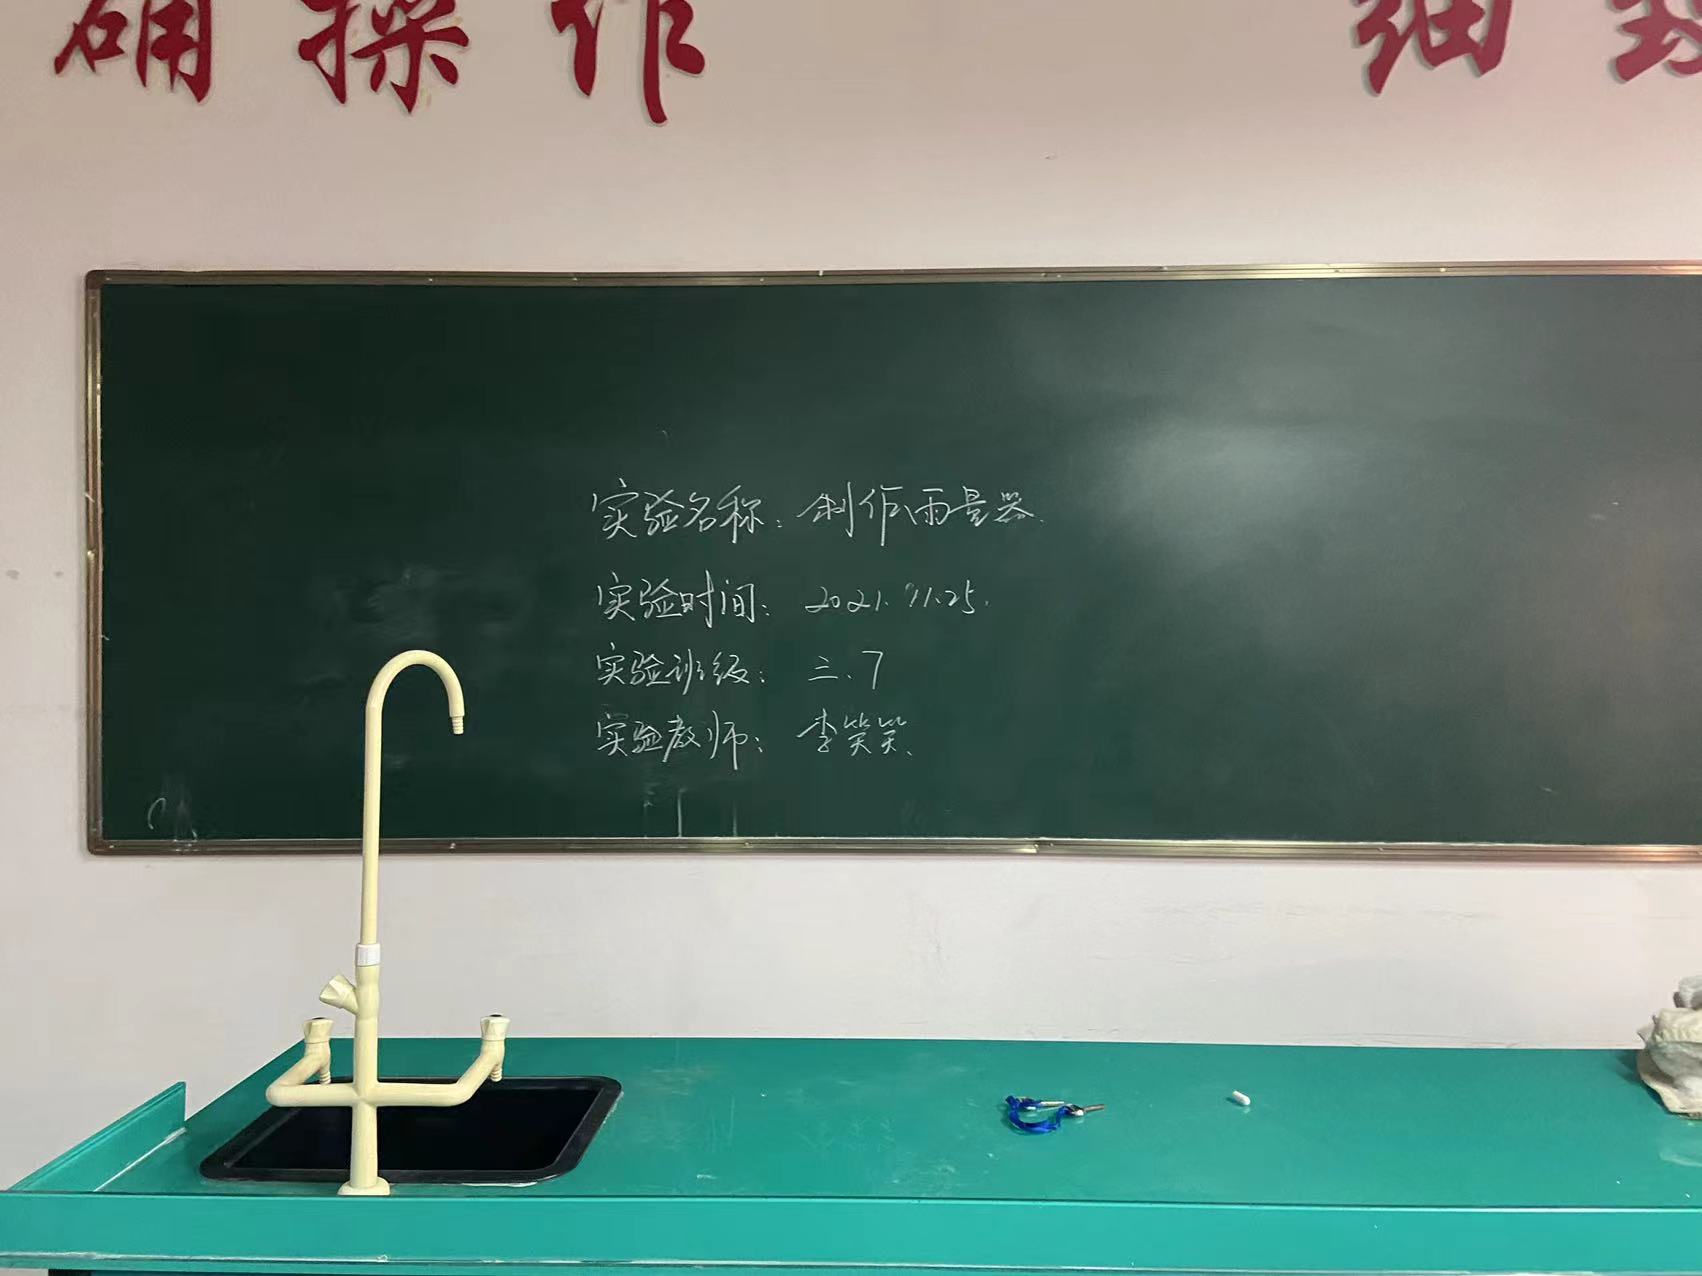 确操作 细致
实验名称：制作雨量器.
实验时间：2021.11.25.
实验班级：三.7
实验教师：李笑笑.